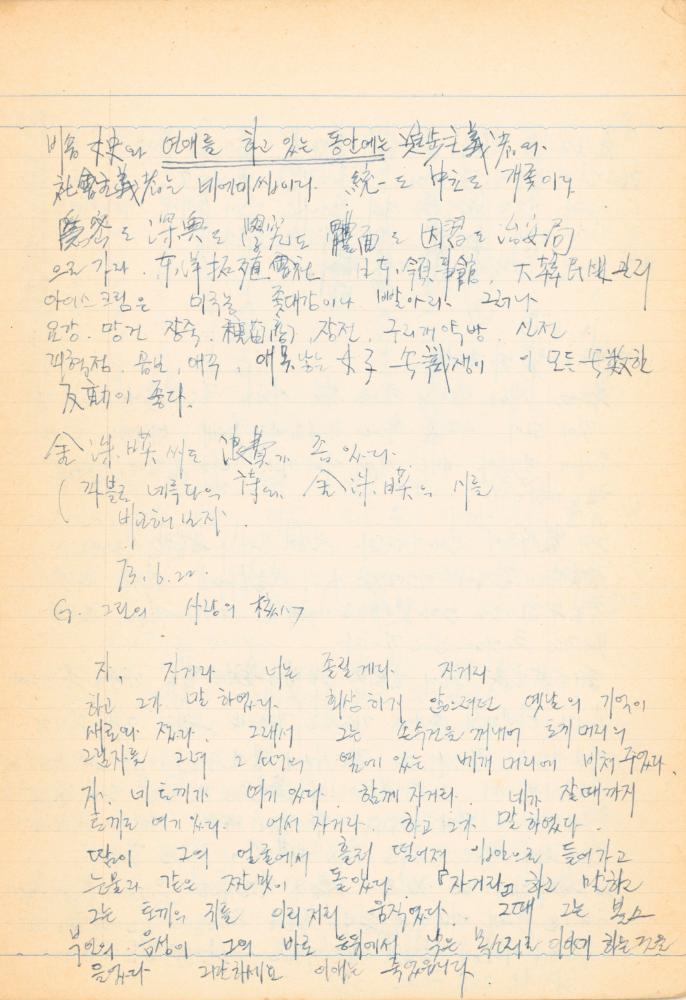 비숍 女史와 연애를 하고 있는 동안에는 進步主義者와
社會主義者는 네에미씹이다. 統一도 中立도 개좆이다
隱密도 深奧도 學究도 體面도 因習도 治安局
으로 가라. 東洋拓殖會社 日本領事館, 大韓民國 관리
아이스크림은 미국놈 좆대강이나 빨아라. 그러나
요강. 망건 장죽. 種苗商, 장전, 구리개 약방. 신전
피혁점. 곰보, 애꾸, 애 못 낳는 女子 無識쟁이 이 모든 無數한
反動이 좋다.
金洙暎씨도 浪費가 좀 있다.
(파블로 네루다의 詩와 金洙暎의 시를
비교해 보자.
73. 6. 22.
G. 그린의 사랑의
자, 자거라 너는 졸릴게다. 자거라
하고 그가 말하였다. 회상하기 않으려던 옛날의 기억이
새로와 졌다. 그래서 그는 손수건을 꺼내어 토끼 머리의
그림자를 그녀 그 의 옆에 있는 베개 머리에 비쳐 주었다.
자. 네 토끼가 여기 있다. 함께 자거라. 네가 잘때까지
토끼도 여기 있다. 어서 자거라. 하고 그가 말하였다.
땀이 그의 얼굴에서 흘러 떨어져 입안으로 들어가고
눈물과 같은 짠맛이 돌았다. 『자거라』 하고 말하고
그는 토끼의 귀를 이리저리 움직였다. 그때 그는 볼스
부인의 음성이 그의 바로 등뒤에서 낮은 목소리로 이렇게 하는것을
들었다 그만하세요 이애는 죽었읍니다.